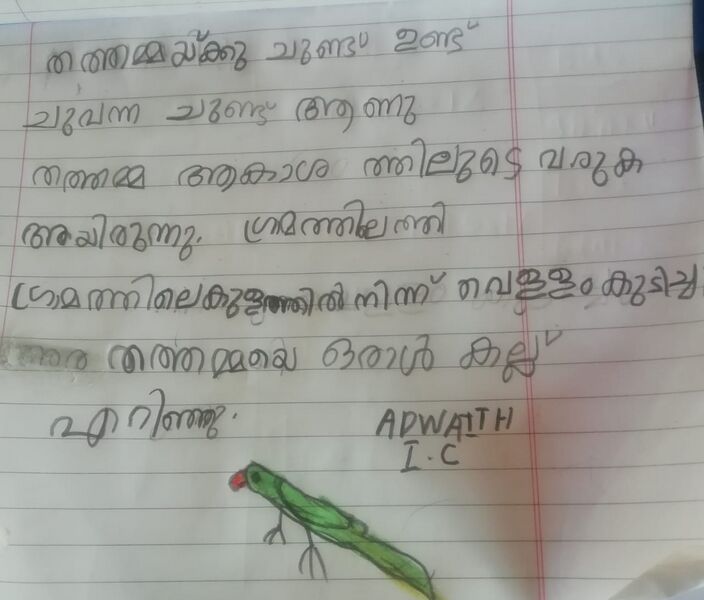 തത്തമ്മയ്ക്കു ചുണ്ട് ഉണ്ട്
ചുവന്ന ചുണ്ട് ആണു
തത്തമ്മ ആകാശ ത്തിലുടെ വരുക
അയിരുന്നു. ഗ്രാമത്തിലെത്തി
ഗ്രാമത്തിലെകുളത്തിൽനിന്ന് വെള്ളംകുടിച്ച
തത്തമ്മയെ ഒരാൾ കല്ല്
എറിഞ്ഞു.
ADWAITH
I.C